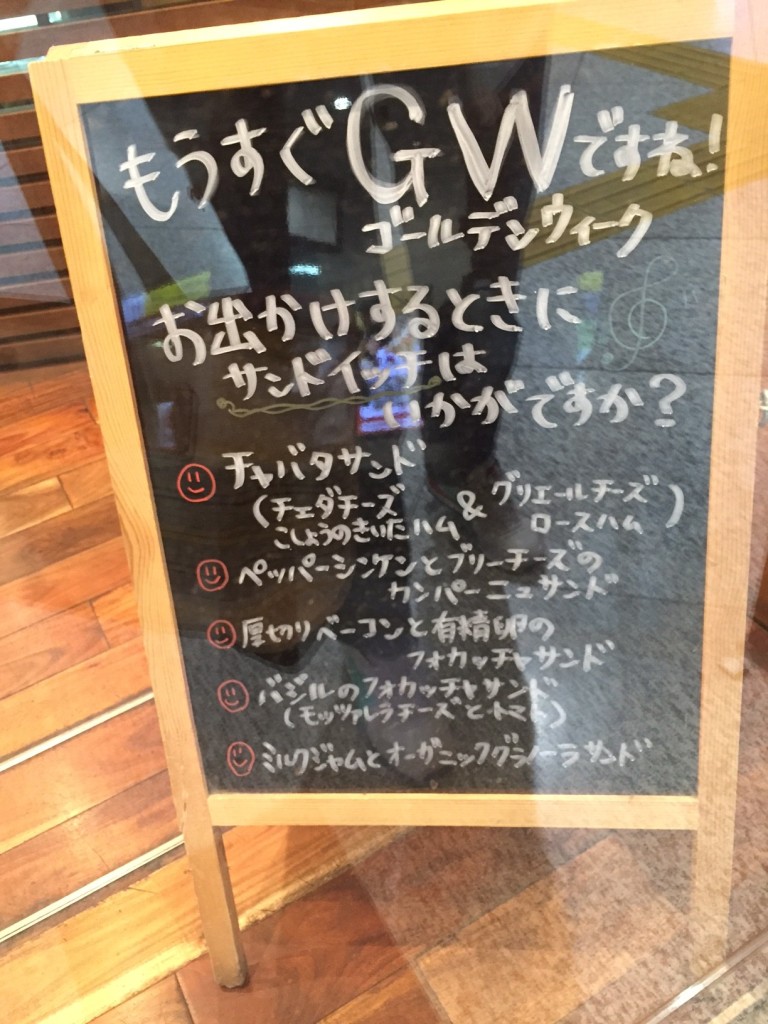 もうすぐGWですね!
ゴールデンウィーク
お出かけするときに
サンドイッチは
いかがですか?
チャバタサンド
(チェダチーズ
こしょうのきいたハム & グリエールチーズ
ロースハム)
ペッパーシンケンとブリーチーズの
カンパーニュサンド
厚切りベーコンと有精卵の
フォカッチャサンド
バジルのフォカッチャサンド
(モッツァレラチーズとトマト)
ミルクジャムとオーガニックグラノーラサンド